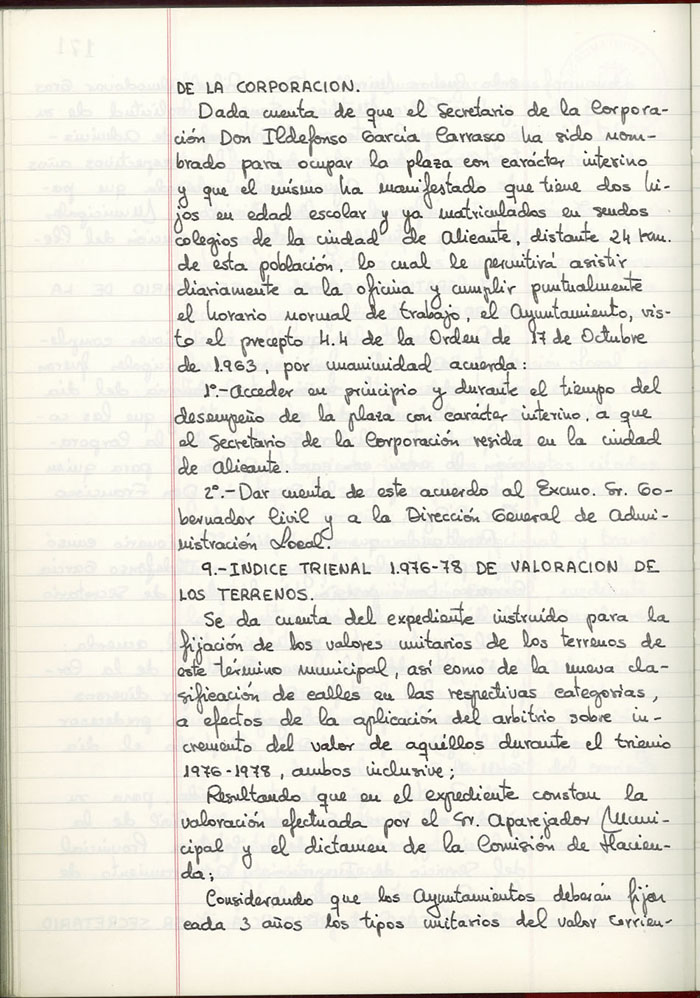 DE LA CORPORACION.
Dada cuenta de que el Secretario de la Corpora-
ción Don Ildefonso García Carrasco ha sido nom-
brado para ocupar la plaza con carácter interino
y que el mismo ha manifestado que tiene dos hi-
jos en edad escolar y ya matriculados en sendos
colegios de la ciudad de Alicante, distante 24 Km.
de esta población, lo cual le permitirá asistir
diariamente a la oficina y cumplir puntualmente
el horario normal de trabajo, el Ayuntamiento, vis-
to el precepto 4.4 de la Orden de 17 de Octubre
de 1.963, por unanimidad acuerda:
1º.-Acceder en principio y durante el tiempo del
desempeño de la plaza con carácter interino, a que
el Secretario de la Corporación resida en la ciudad
de Alicante.
2º.-Dar cuenta de este acuerdo al Excmo. Sr. Go-
bernador Civil y a la Dirección General de Admi-
nistración Local.
9.-INDICE TRIENAL 1.976-78 DE VALORACION DE
LOS TERRENOS.
Se da cuenta del expediente instruído para la
fijación de los valores unitarios de los terrenos de
este término municipal, así como de la nueva cla-
sificación de calles en las respectivas categorías,
a efectos de la aplicación del arbitrio sobre in-
cremento del valor de aquéllos durante el trienio
1976-1978, ambos inclusive;
Resultando que en el expediente constan la
valoración efectuada por el Sr. Aparejador Muni-
cipal y el dictamen de la Comisión de Hacien-
da;
Considerando que los Ayuntamientos deberán fijar
cada 3 años los tipos unitarios del valor corrien-